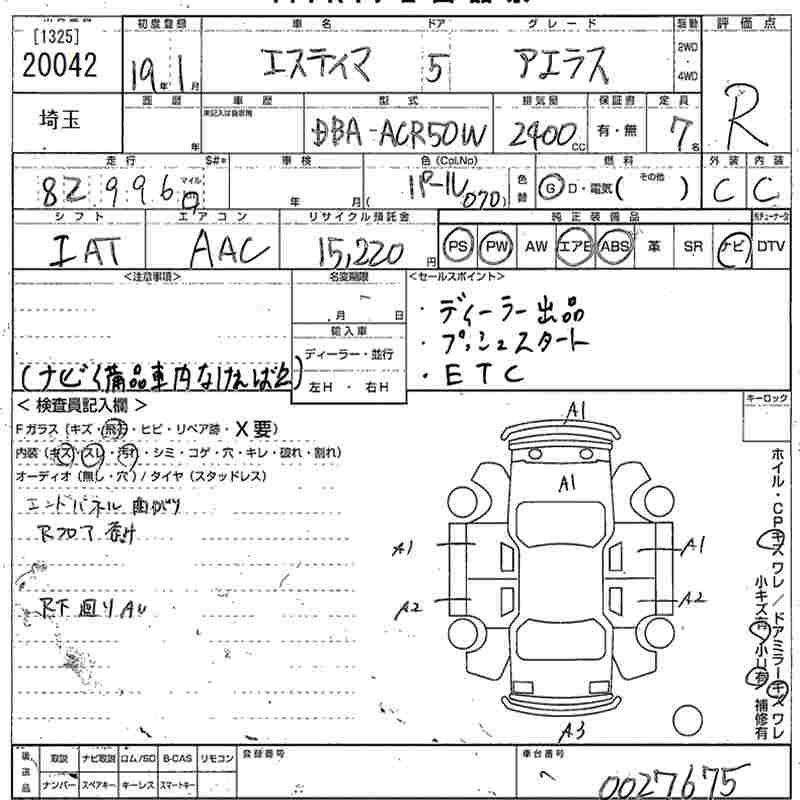 [1325]
20042
初度登録 車名 ドア グレード 駆動 評価点
19年1月 エスティマ 5 アエラス 2WD・4WD R
埼玉
車歴 型式 排気量 保証書 定員
年 DBA-ACR50W 2400cc 有・無 7名
走行 S#* 車検 色(Col.No) 燃料 外装 内装
82,996 マイル 年 月 パール 070) 色替 G D・電気( その他 ) C C
シフト エアコン リサイクル預託金 純正装備品
IAT AAC 15,220円 PS PW AW エアB ABS 革 SR ナビ DTV
<注意事項> 名変期限 <セールスポイント>
月 日
・ディーラー出品
輸入車
・プッシュスタート
ディーラー・並行
(ナビ備品車内なければ
左H・右H
・ETC
<検査員記入欄>
キーロック
Fガラス(キズ・飛石・ヒビ・リペア跡・X要)
内装(キズ・スレ・汚れ・シミ・コゲ・穴・キレ・破れ・割れ)
オーディオ(無し・穴)/タイヤ(スタッドレス)
エンドパネル曲がり
Rフロア
R下廻りAU
A1
A1
A1 A1
A2 A2
A3
ホイル・CPキズワレ/ドアミラーキズワレ
小キズ有 小U有 補修有
後送品 取説 ナビ取説 ロム/SD B-CAS リモコン 登録番号 車台番号
ナンバー スペアキー キーレス スマートキー 0027675